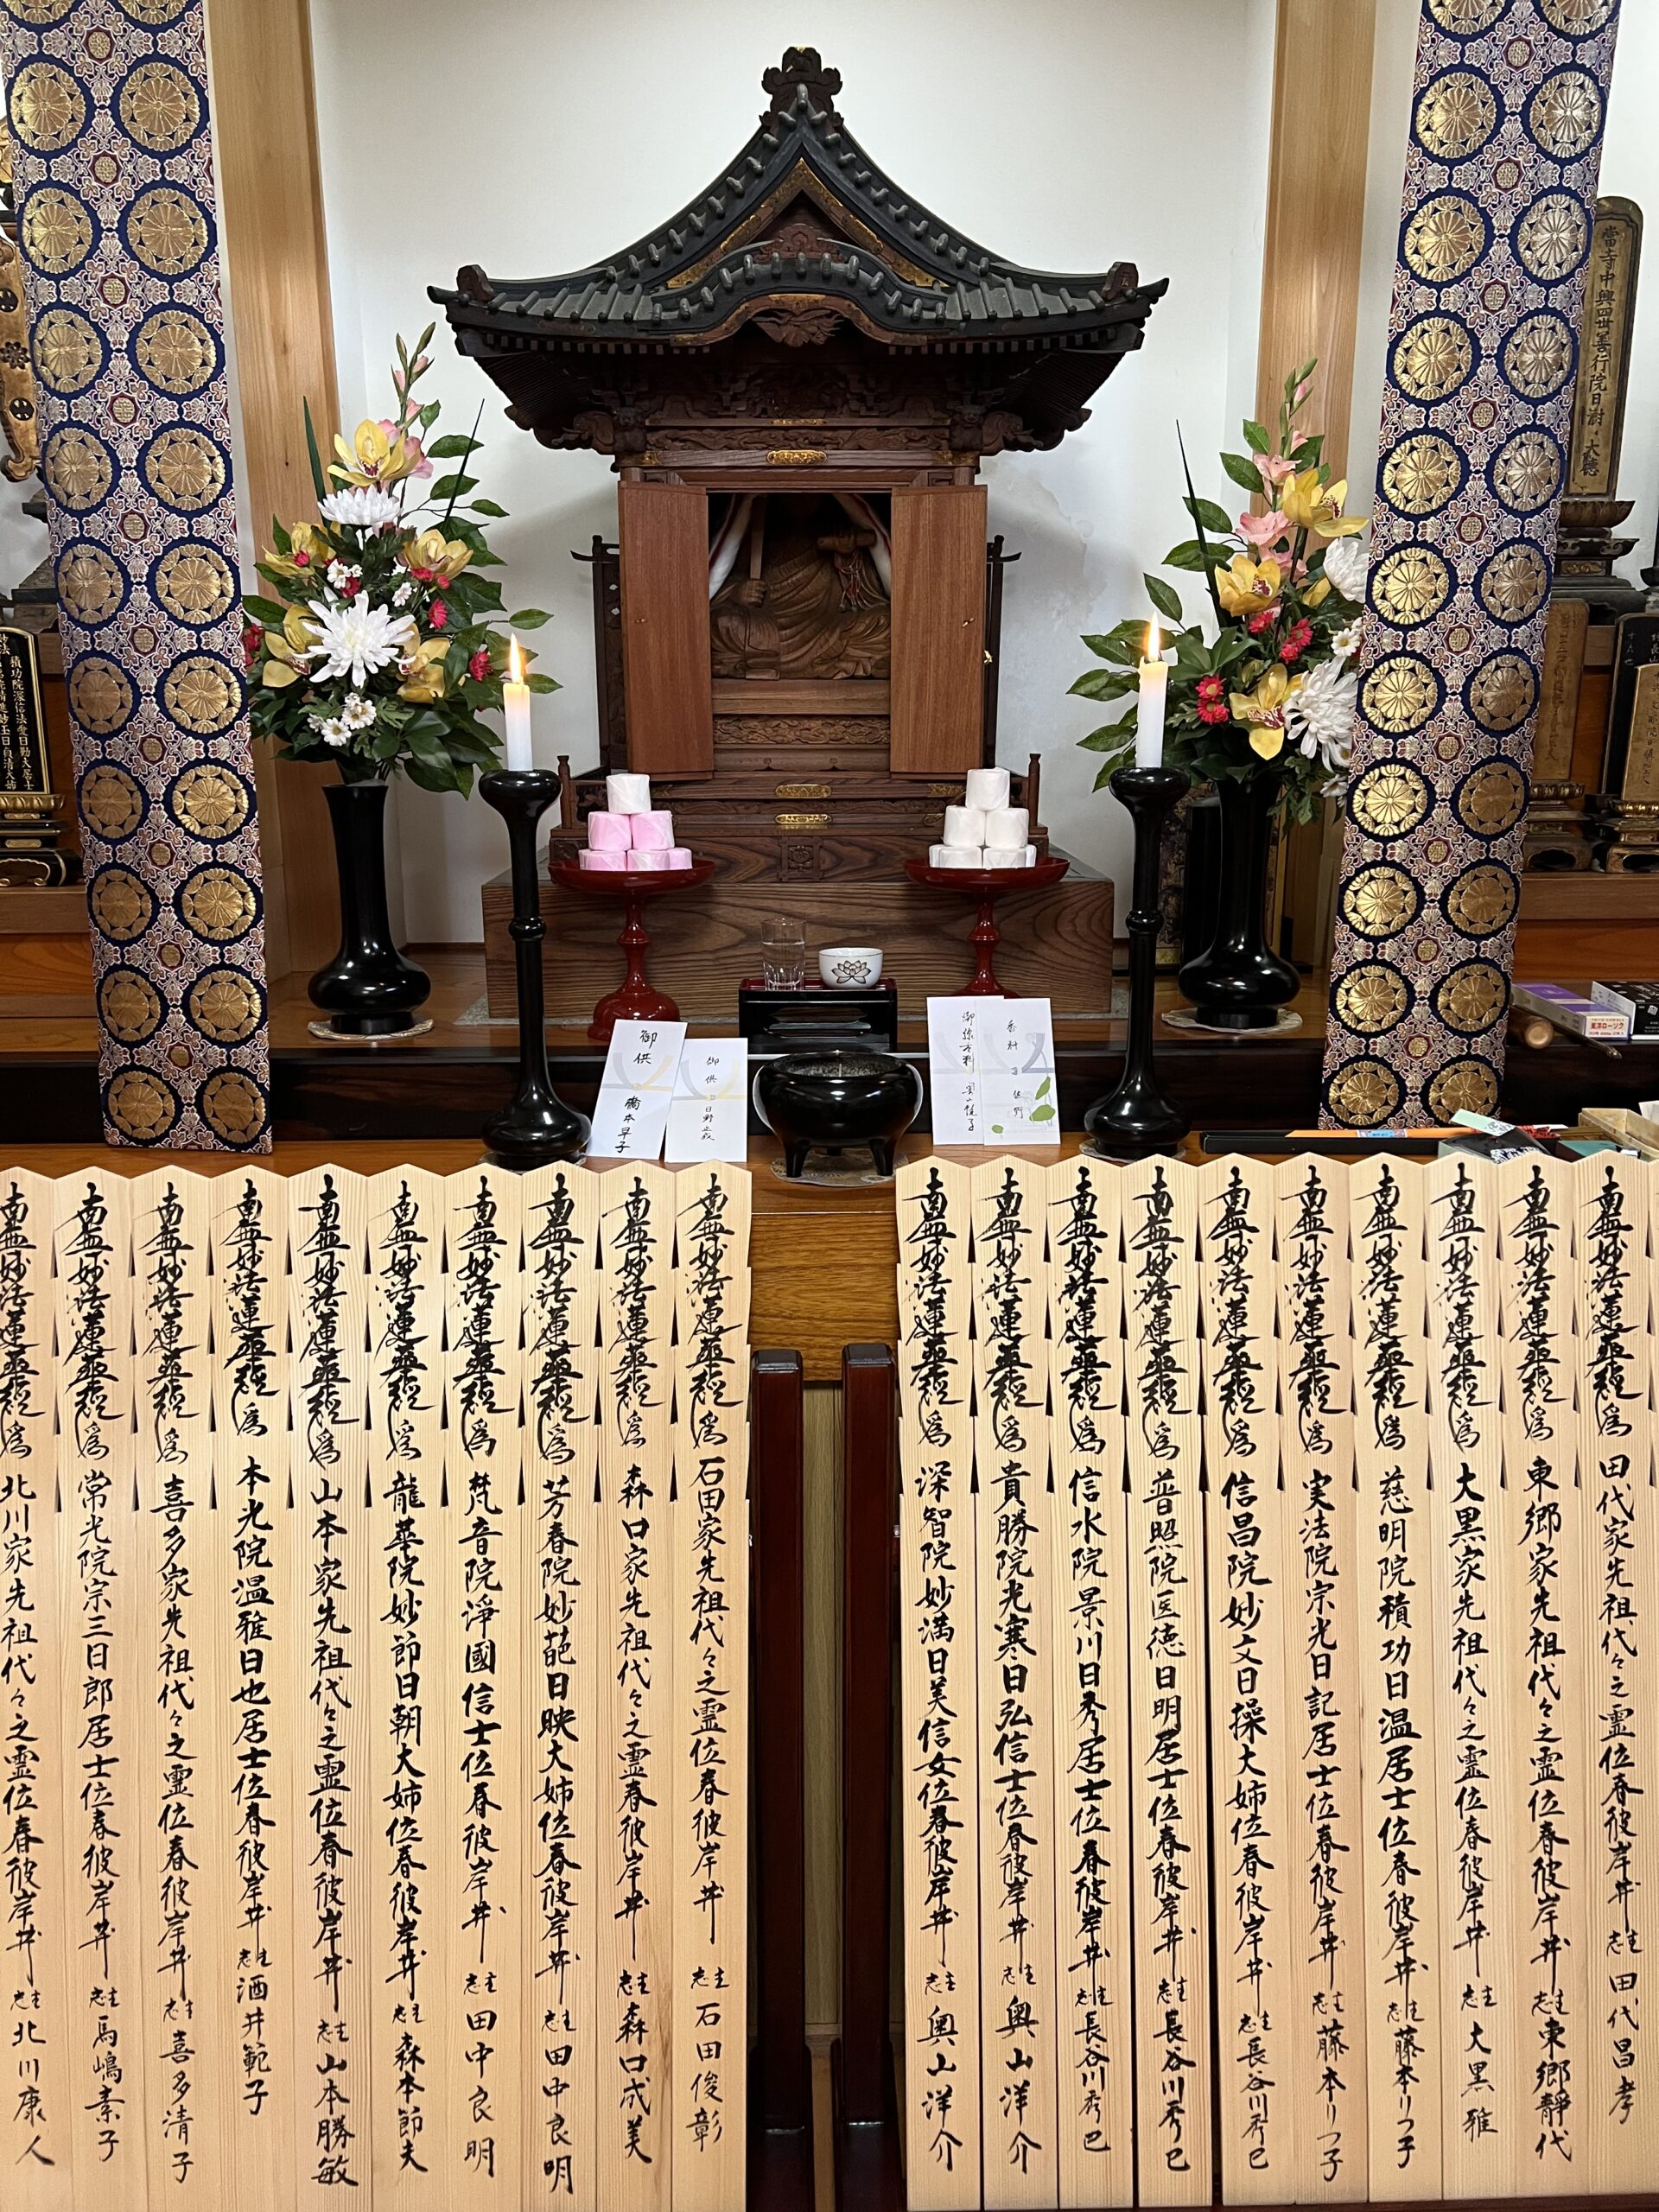 當寺中興四世善行院日澍大德
積功院深信法愛日勤大居士
御供 橋本早子
御供
東洋ローソク
南無妙法蓮華経為 田代家先祖代々之霊位春彼岸井 志主 田代昌孝
南無妙法蓮華経為 東郷家先祖代々之霊位春彼岸井 志主 東郷靜代
南無妙法蓮華経為 大黒家先祖代々之霊位春彼岸井 志主 大黒雅
南無妙法蓮華経為 慈明院積功日温居士位春彼岸井 志主 藤本リつ子
南無妙法蓮華経為 実法院宗光日記居士位春彼岸井 志主 藤本リつ子
南無妙法蓮華経為 信昌院妙文日操大姉位春彼岸井 志主 長谷川秀巳
南無妙法蓮華経為 普照院医徳日明居士位春彼岸井 志主 長谷川秀巳
南無妙法蓮華経為 信水院景川日秀居士位春彼岸井 志主 長谷川秀巳
南無妙法蓮華経為 貴勝院光寒日弘信士位春彼岸井 志主 奥山洋介
南無妙法蓮華経為 深智院妙満日美信女位春彼岸井 志主 奥山洋介
南無妙法蓮華経為 石田家先祖代々之霊位春彼岸井 志主 石田俊彰
南無妙法蓮華経為 森口家先祖代々之霊位春彼岸井 志主 森口成美
南無妙法蓮華経為 芳春院妙葩日映大姉位春彼岸井 志主 田中良明
南無妙法蓮華経為 梵音院淨國信士位春彼岸井 志主 田中良明
南無妙法蓮華経為 龍華院妙節日朝大姉位春彼岸井 志主 森本節夫
南無妙法蓮華経為 山本家先祖代々之霊位春彼岸井 志主 山本勝敏
南無妙法蓮華経為 本光院温雅日也居士位春彼岸井 志主 酒井範子
南無妙法蓮華経為 喜多家先祖代々之霊位春彼岸井 志主 喜多清子
南無妙法蓮華経為 常光院宗三日郎居士位春彼岸井 志主 馬嶋素子
南無妙法蓮華経為 北川家先祖代々之霊位春彼岸井 志主 北川康人